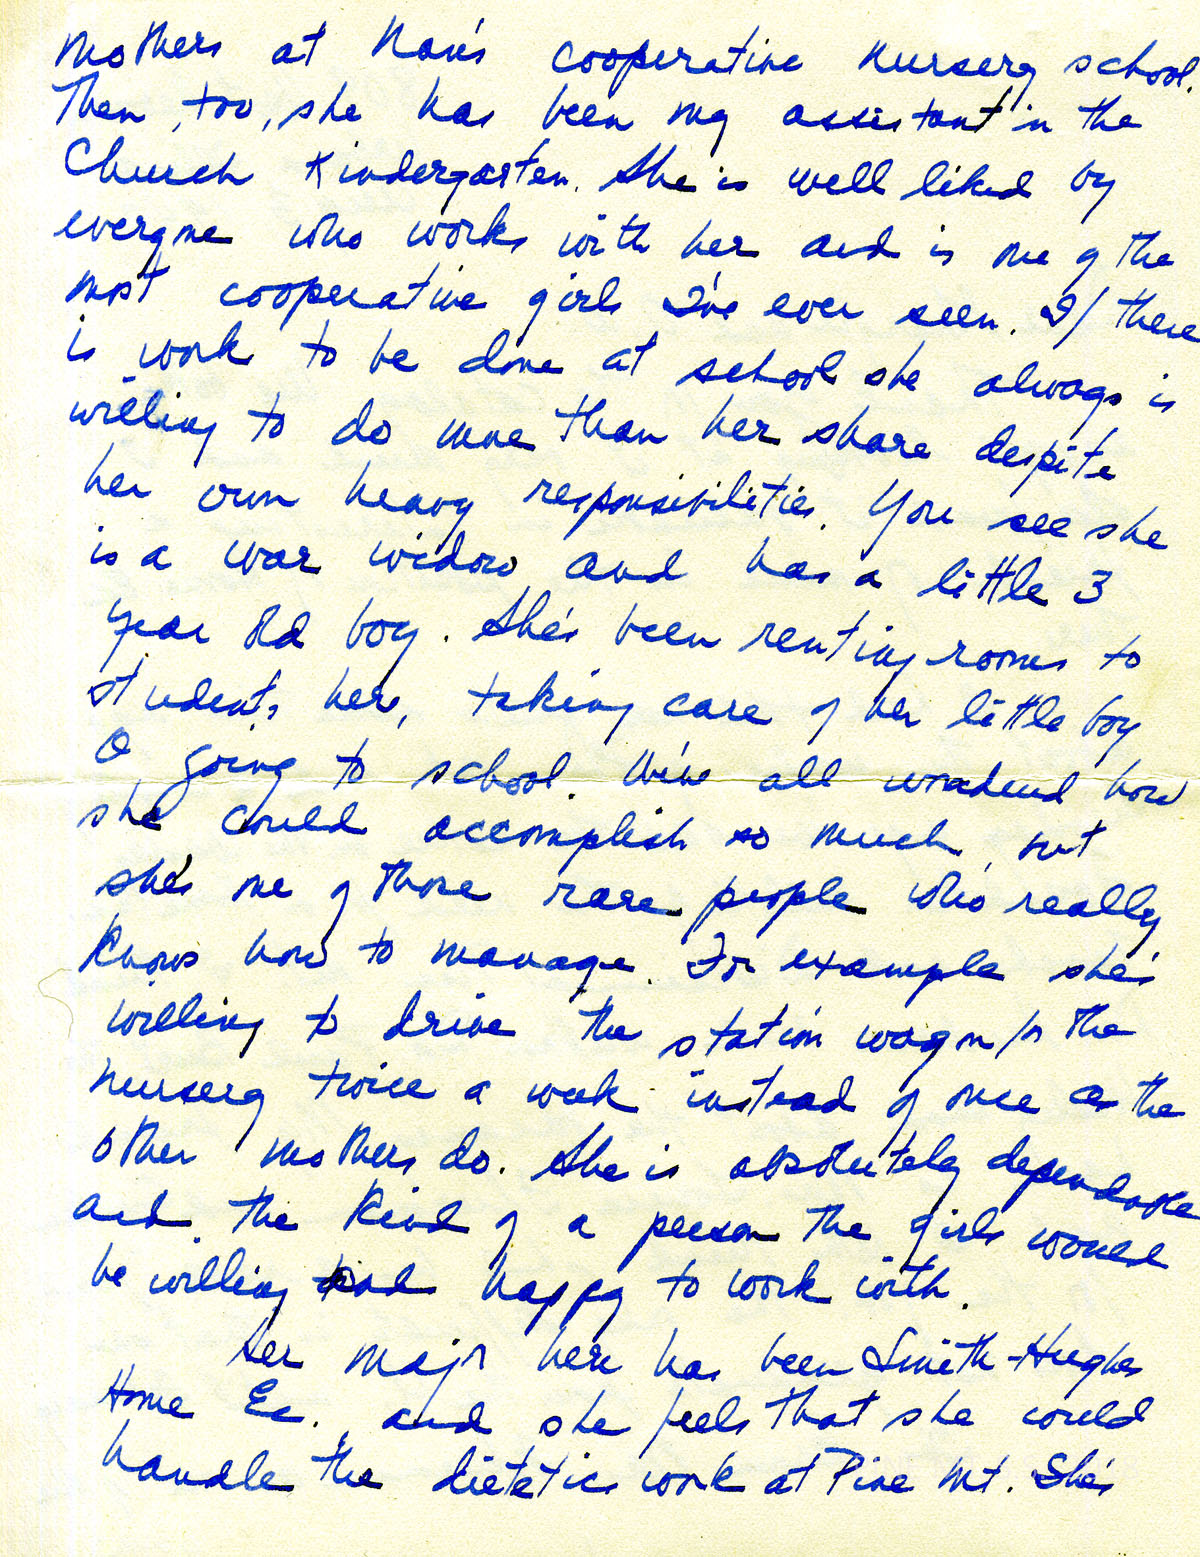 mothers at Nan's cooperative nursery school.
Then, too, she has been my assistant in the
Church Kindergarten. She is well liked by
everyone who works with her and is one of the
most cooperative girls I've ever seen. If there
is work to be done at school she always is
willing to do more than her share despite
her own heavy responsibilities. You see she
is a war widow and has a little 3
year old boy. She's been renting rooms to
students here, taking care of her little boy
& going to school. We've all wondered how
she could accomplish so much, but
she's one of those rare people who really
knows how to manage. For example she's
willing to drive the station wagon for the
nursery twice a week instead of once as the
other mothers do. She is absolutely dependable
and the kind of a person the girls would
be willing and happy to work with.
Her major here has been Smith-Hughes
Home Ec., and she feels that she could
handle the dietetic work at Pine Mt. She's